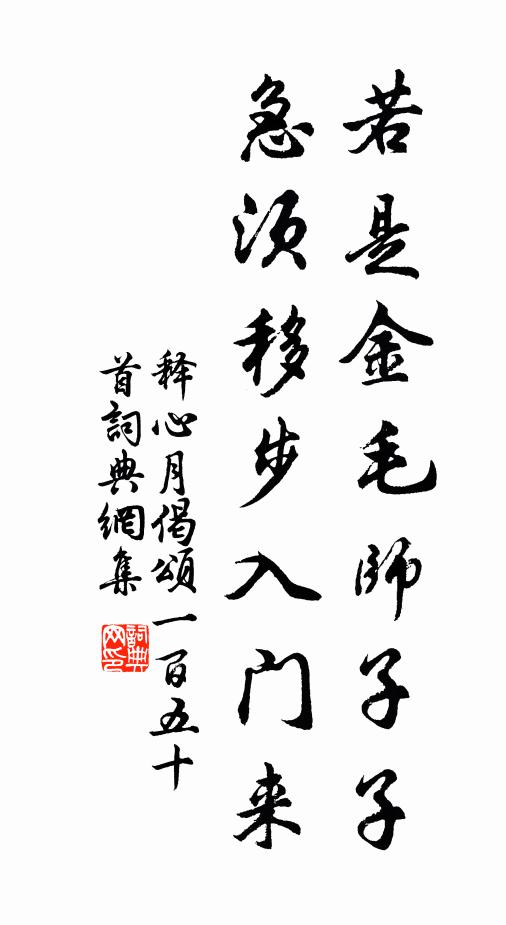 若是金毛師子子
急须移步入门来
释心月偈頌一百五十
首詞典網集
詞典網印